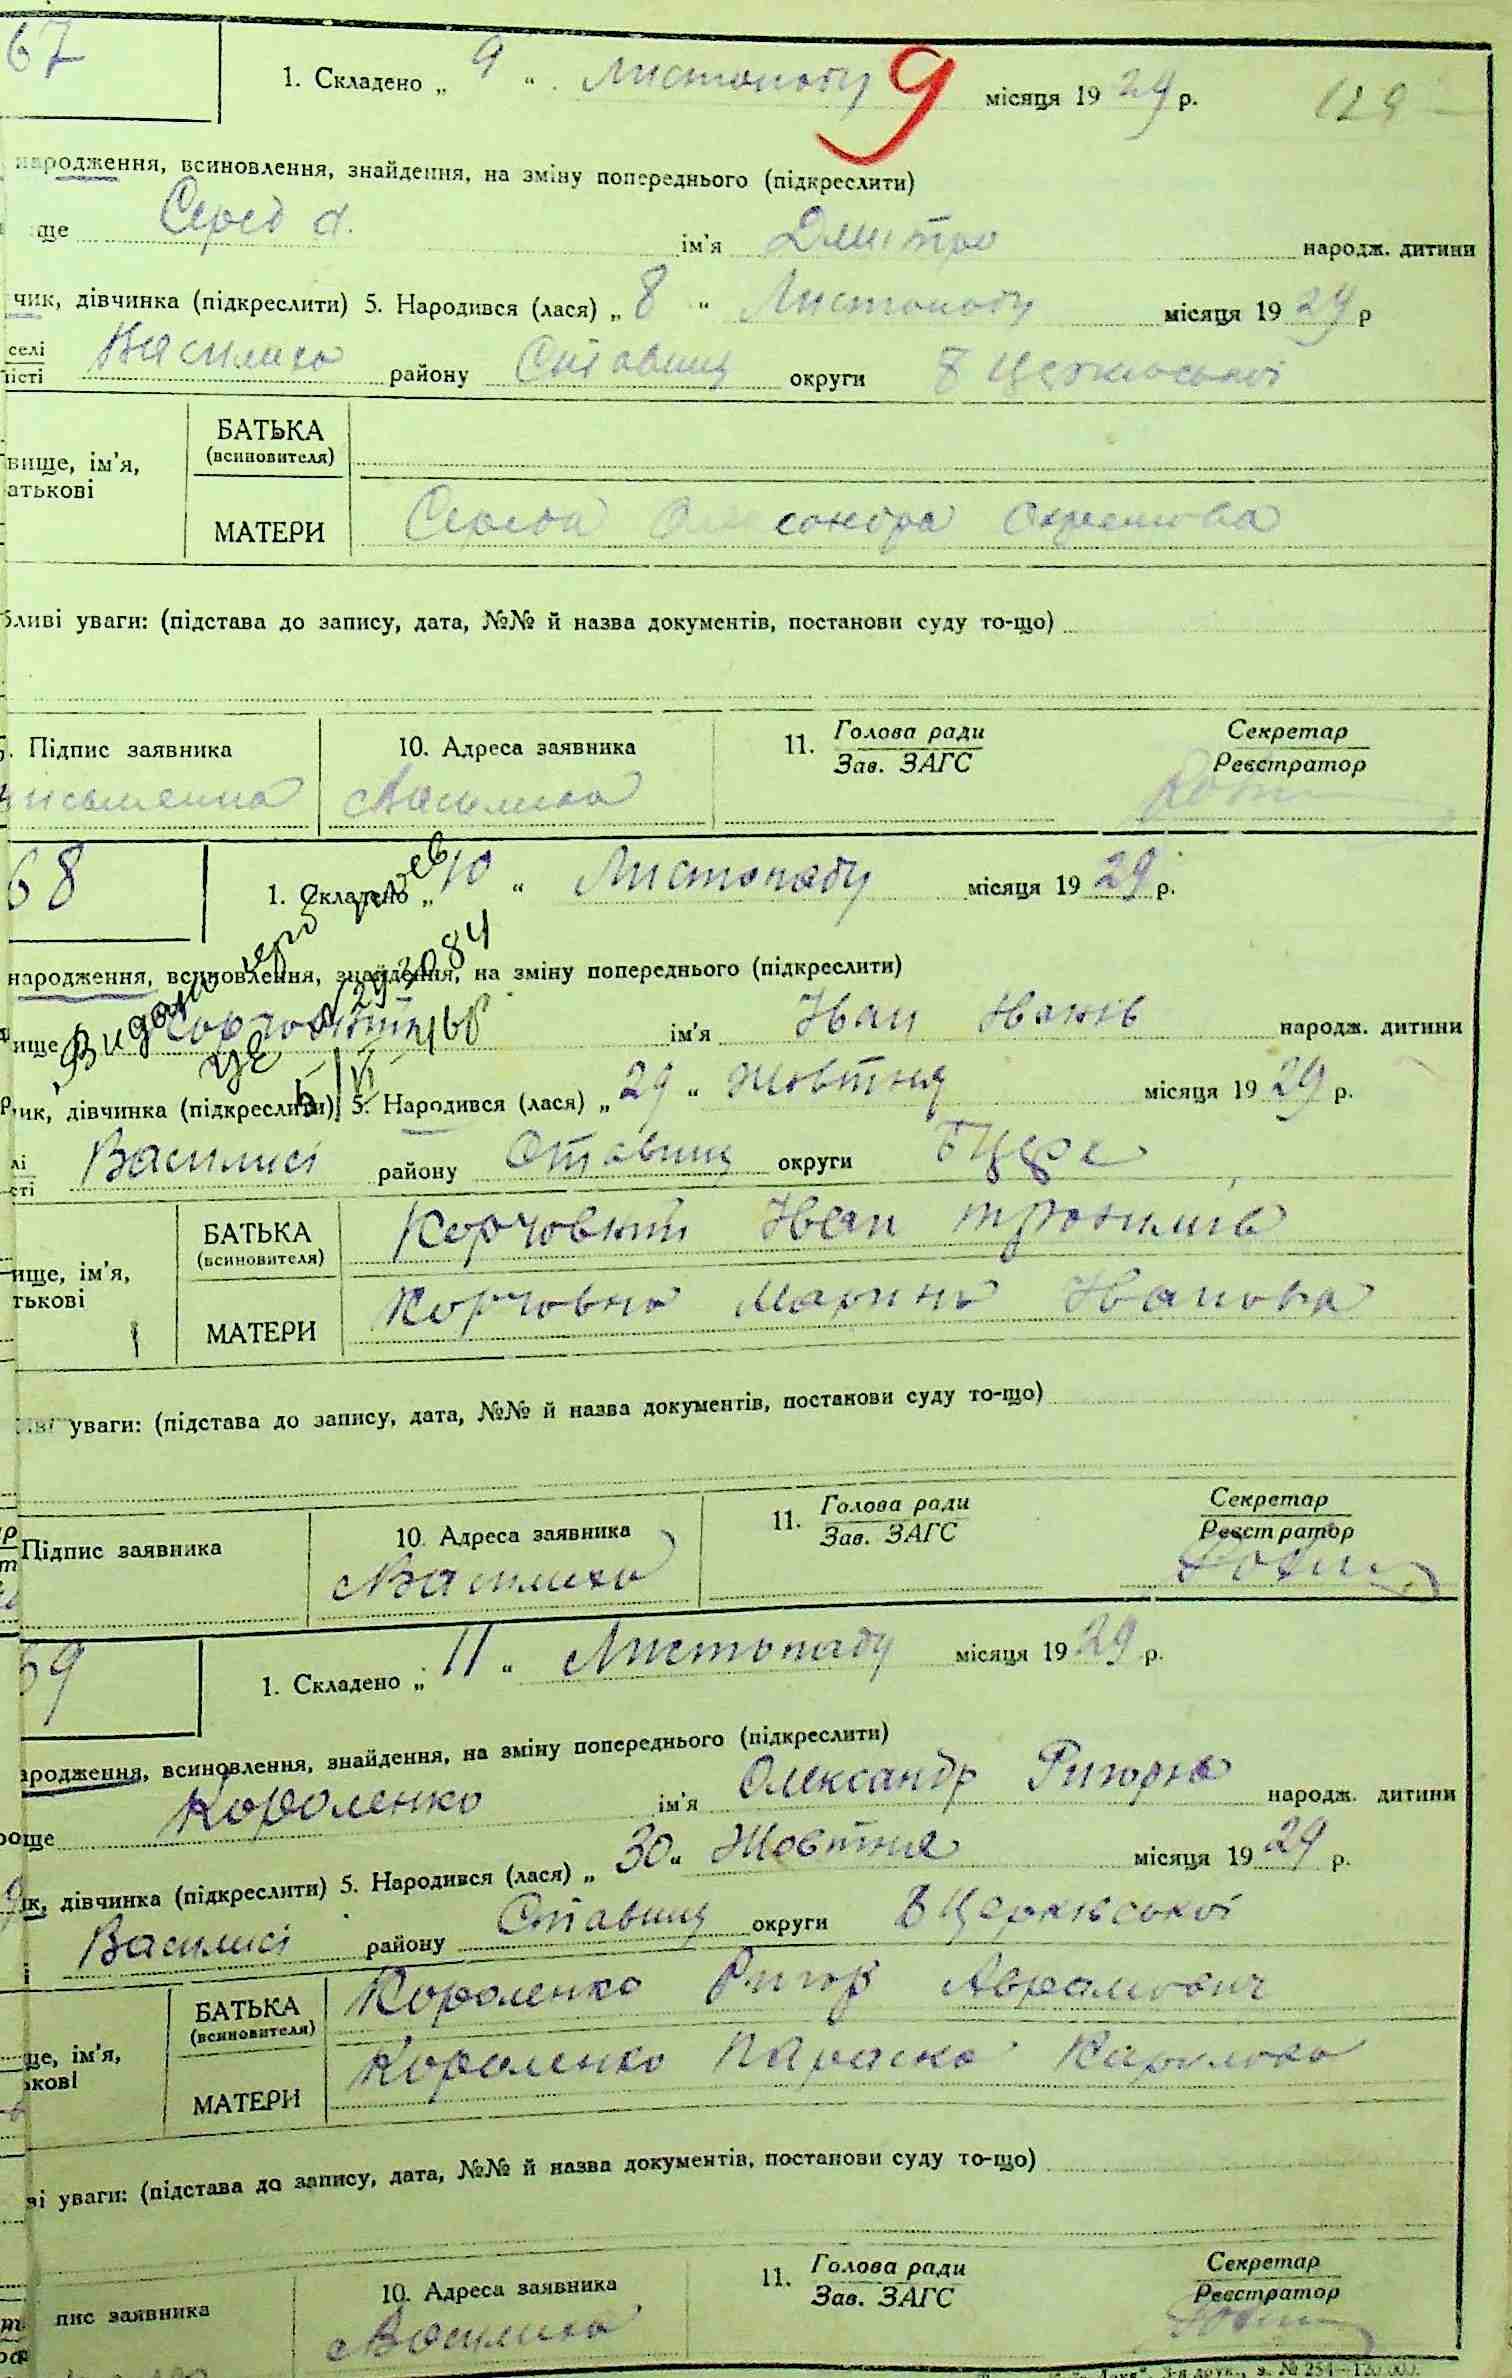 67
1. Складено „ 9 “ Листопаду 9 місяця 19 29 р. 129
народження, всиновлення, знайдення, на зміну попереднього (підкреслити)
ще Серед а. ім'я Дмитро народж. дитини
чик, дівчинка (підкреслити) 5. Народився (лася) „ 8 “ Листопаду місяця 19 29 р
селі
місті Василиха району Ставищ округи Б Церківської
БАТЬКА
(всиновителя)
вище, ім'я,
атькові
МАТЕРИ Середа Олександра
бливі уваги: (підстава до запису, дата, №№ й назва документів, постанови суду то-що)
. Підпис заявника 10. Адреса заявника 11. Голова ради Секретар
Зав. ЗАГС Реєстратор
письменна Василиха
68
1. Складено „ 10 “ Листопаду місяця 19 29 р.
народження, всиновлення, знайдення, на зміну попереднього (підкреслити)
Видано
вище ім'я Іван Іванів народж. дитини
ик, дівчинка (підкреслити) 5. Народився (лася) „ 29 “ Жовтня місяця 19 29 р.
лі
сті Василисі району Ставищ округи БЦерк
БАТЬКА
(всиновителя) Корчовний Іван Трохимів
ище, ім'я,
тькові
МАТЕРИ Корчовна Марина Іванова
уваги: (підстава до запису, дата, №№ й назва документів, постанови суду то-що)
Підпис заявника 10. Адреса заявника 11. Голова ради Секретар
Зав. ЗАГС Реєстратор
Василиха
69
1. Складено „ 11 “ Листопаду місяця 19 29 р.
ародження, всиновлення, знайдення, на зміну попереднього (підкреслити)
Короленко ім'я Олександр народж. дитини
ик, дівчинка (підкреслити) 5. Народився (лася) „ 30 “ Жовтня місяця 19 29 р.
і Василисі району Ставищ округи Б Церківської
БАТЬКА
(всиновителя) Короленко Ригор Аврамович
ще, ім'я,
ькові
МАТЕРИ Короленко Параска
ві уваги: (підстава до запису, дата, №№ й назва документів, постанови суду то-що)
пис заявника 10. Адреса заявника 11. Голова ради Секретар
Зав. ЗАГС Реєстратор
Василиха